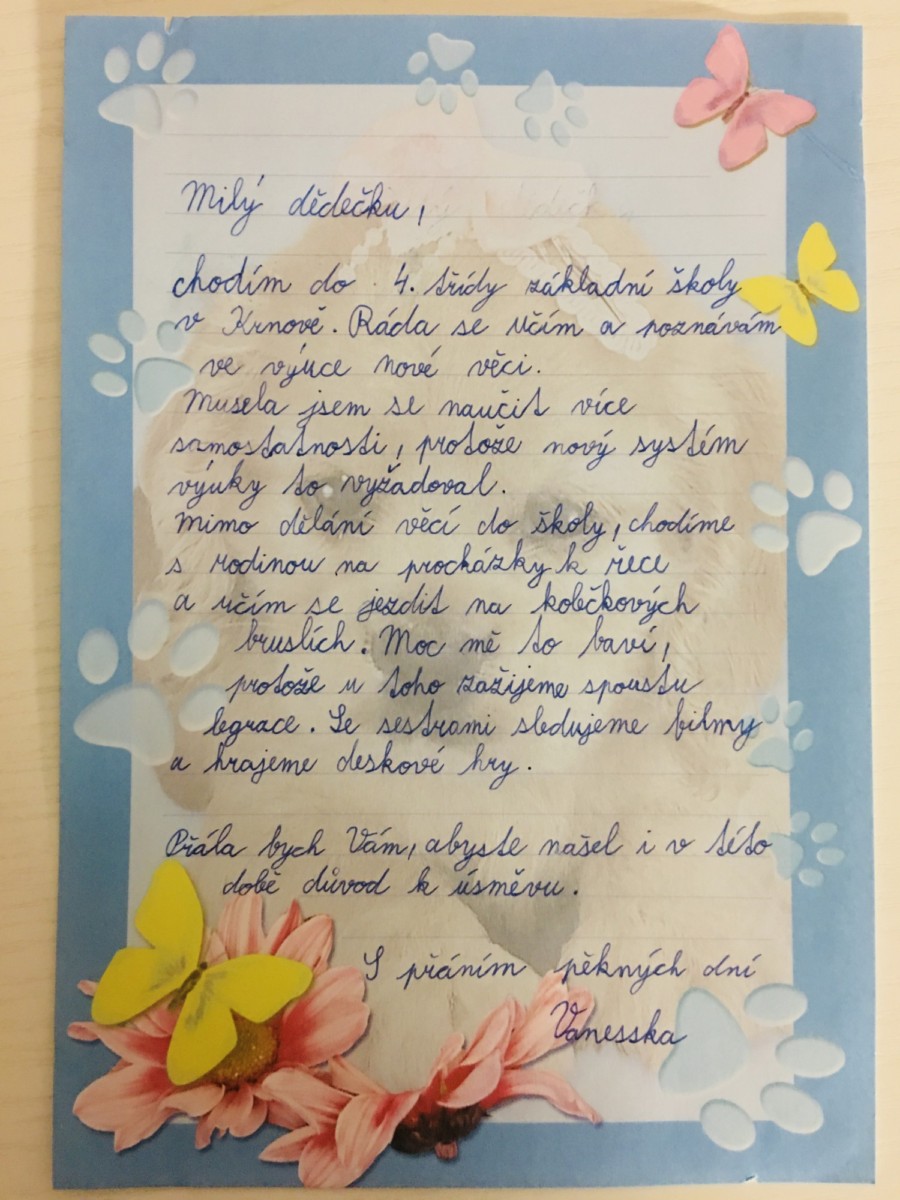 Milý dědečku,
chodím do 4. třídy základní školy
v Krnově. Ráda se učím a poznávám
ve výuce nové věci.
Musela jsem se naučit více
samostatnosti, protože nový systém
výuky to vyžadoval.
Mimo dělání věcí do školy, chodíme
s rodinou na procházky k řece
a učím se jezdit na kolečkových
bruslích. Moc mě to baví,
protože u toho zažijeme spoustu
legrace. Se sestrami sledujeme filmy
a hrajeme deskové hry.
Přála bych Vám, abyste našel i v této
době důvod k úsměvu.
S přáním pěkných dní
Vanesska